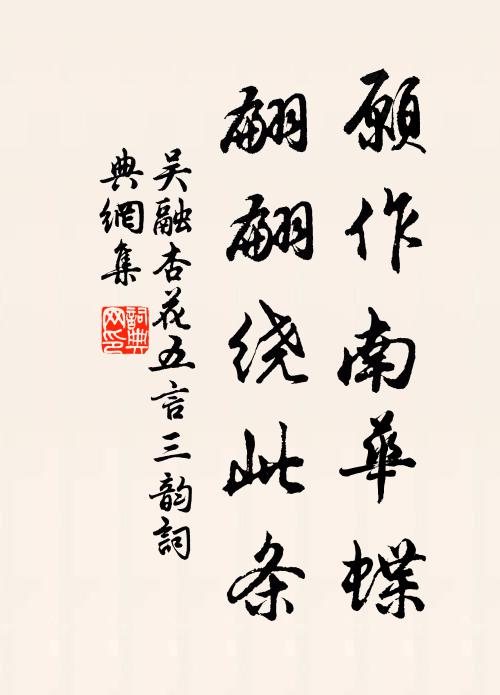 願作南華蝶
翩翩绕此条
吴融杏花五言三韵詞
典網集
詞典
网印